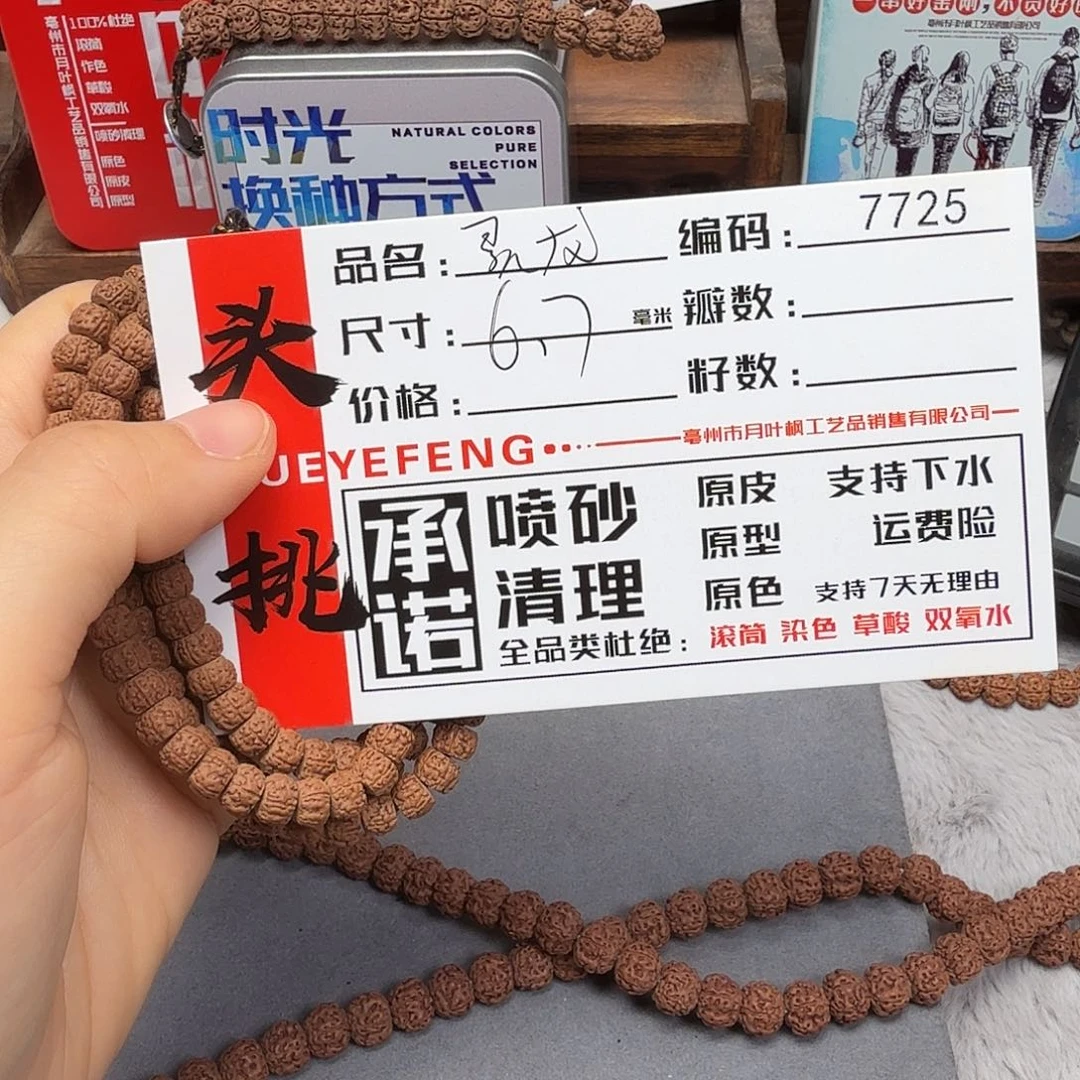 100%杜绝
滚筒
作色
草酸
双氧水
喷砂清理
原色
原皮
原型
亳州市月叶枫工艺品销售有限公司
时光
换种方式
NATURAL COLORS
PURE
SELECTION
头挑
品名：
编码：7725
尺寸：6.7毫米
瓣数：
价格：
籽数：
UEYEFENG
亳州市月叶枫工艺品销售有限公司
承诺
喷砂
清理
原皮
原型
原色
支持下水
运费险
支持7天无理由
全品类杜绝：滚筒 染色 草酸 双氧水